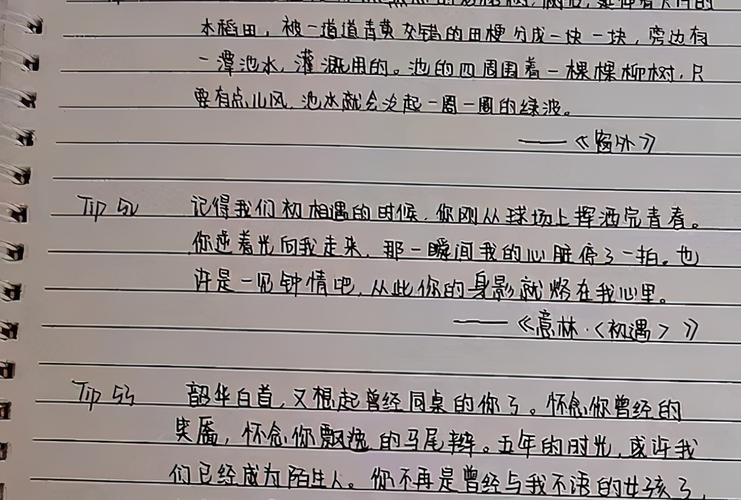 水稻田，被一道道青黄交错的田梗分成一块一块，旁边有
一潭池水，灌溉用的。池的四周围着一棵棵柳树，只
要有点儿风，池水就会泛起一圈一圈的绿波。
——《窗外》
Tip 52 记得我们初相遇的时候，你刚从球场上挥洒完青春。
你逆着光向我走来，那一瞬间我的心脏停了一拍。也
许是一见钟情吧，从此你的身影就烙在我心里。
——《意林·〈初遇〉》
Tip 53 韶华白首，又想起曾经同桌的你了。怀念你曾经的
笑靥，怀念你飘逸的马尾辫。五年的时光，或许我
们已经成为陌生人。你不再是曾经与我不语的女孩了